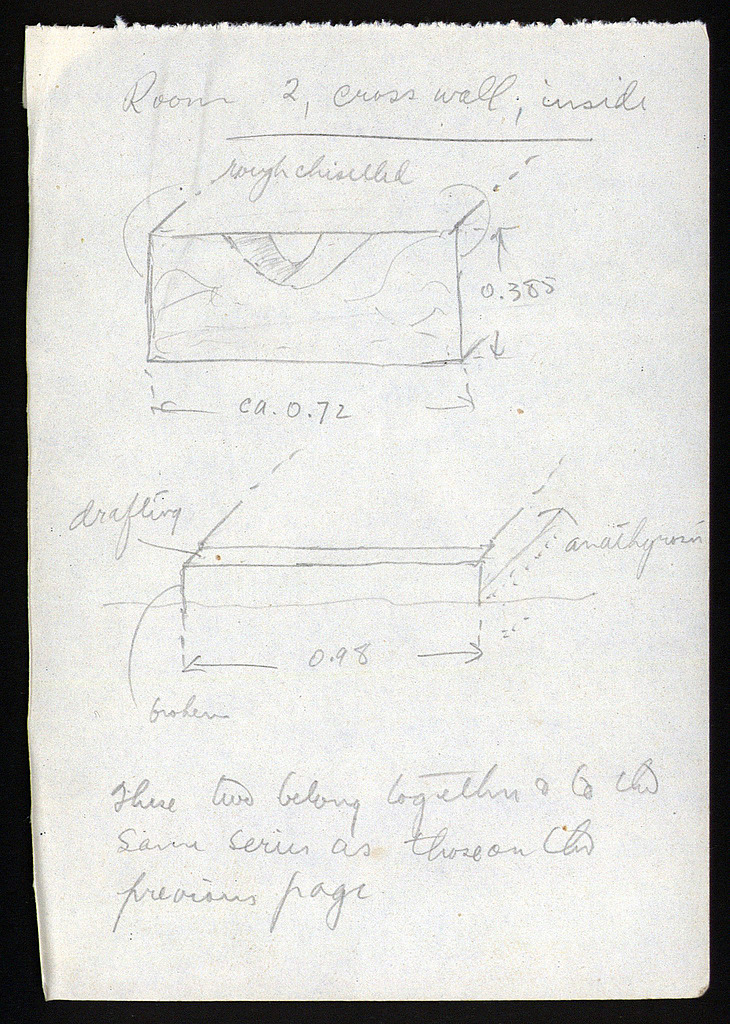 Room 2, cross wall, inside
rough chiselled
0.385
ca. 0.72
drafting
anathyrosis
0.98
broken
These two belong together & to the
same series as those on the
previous page